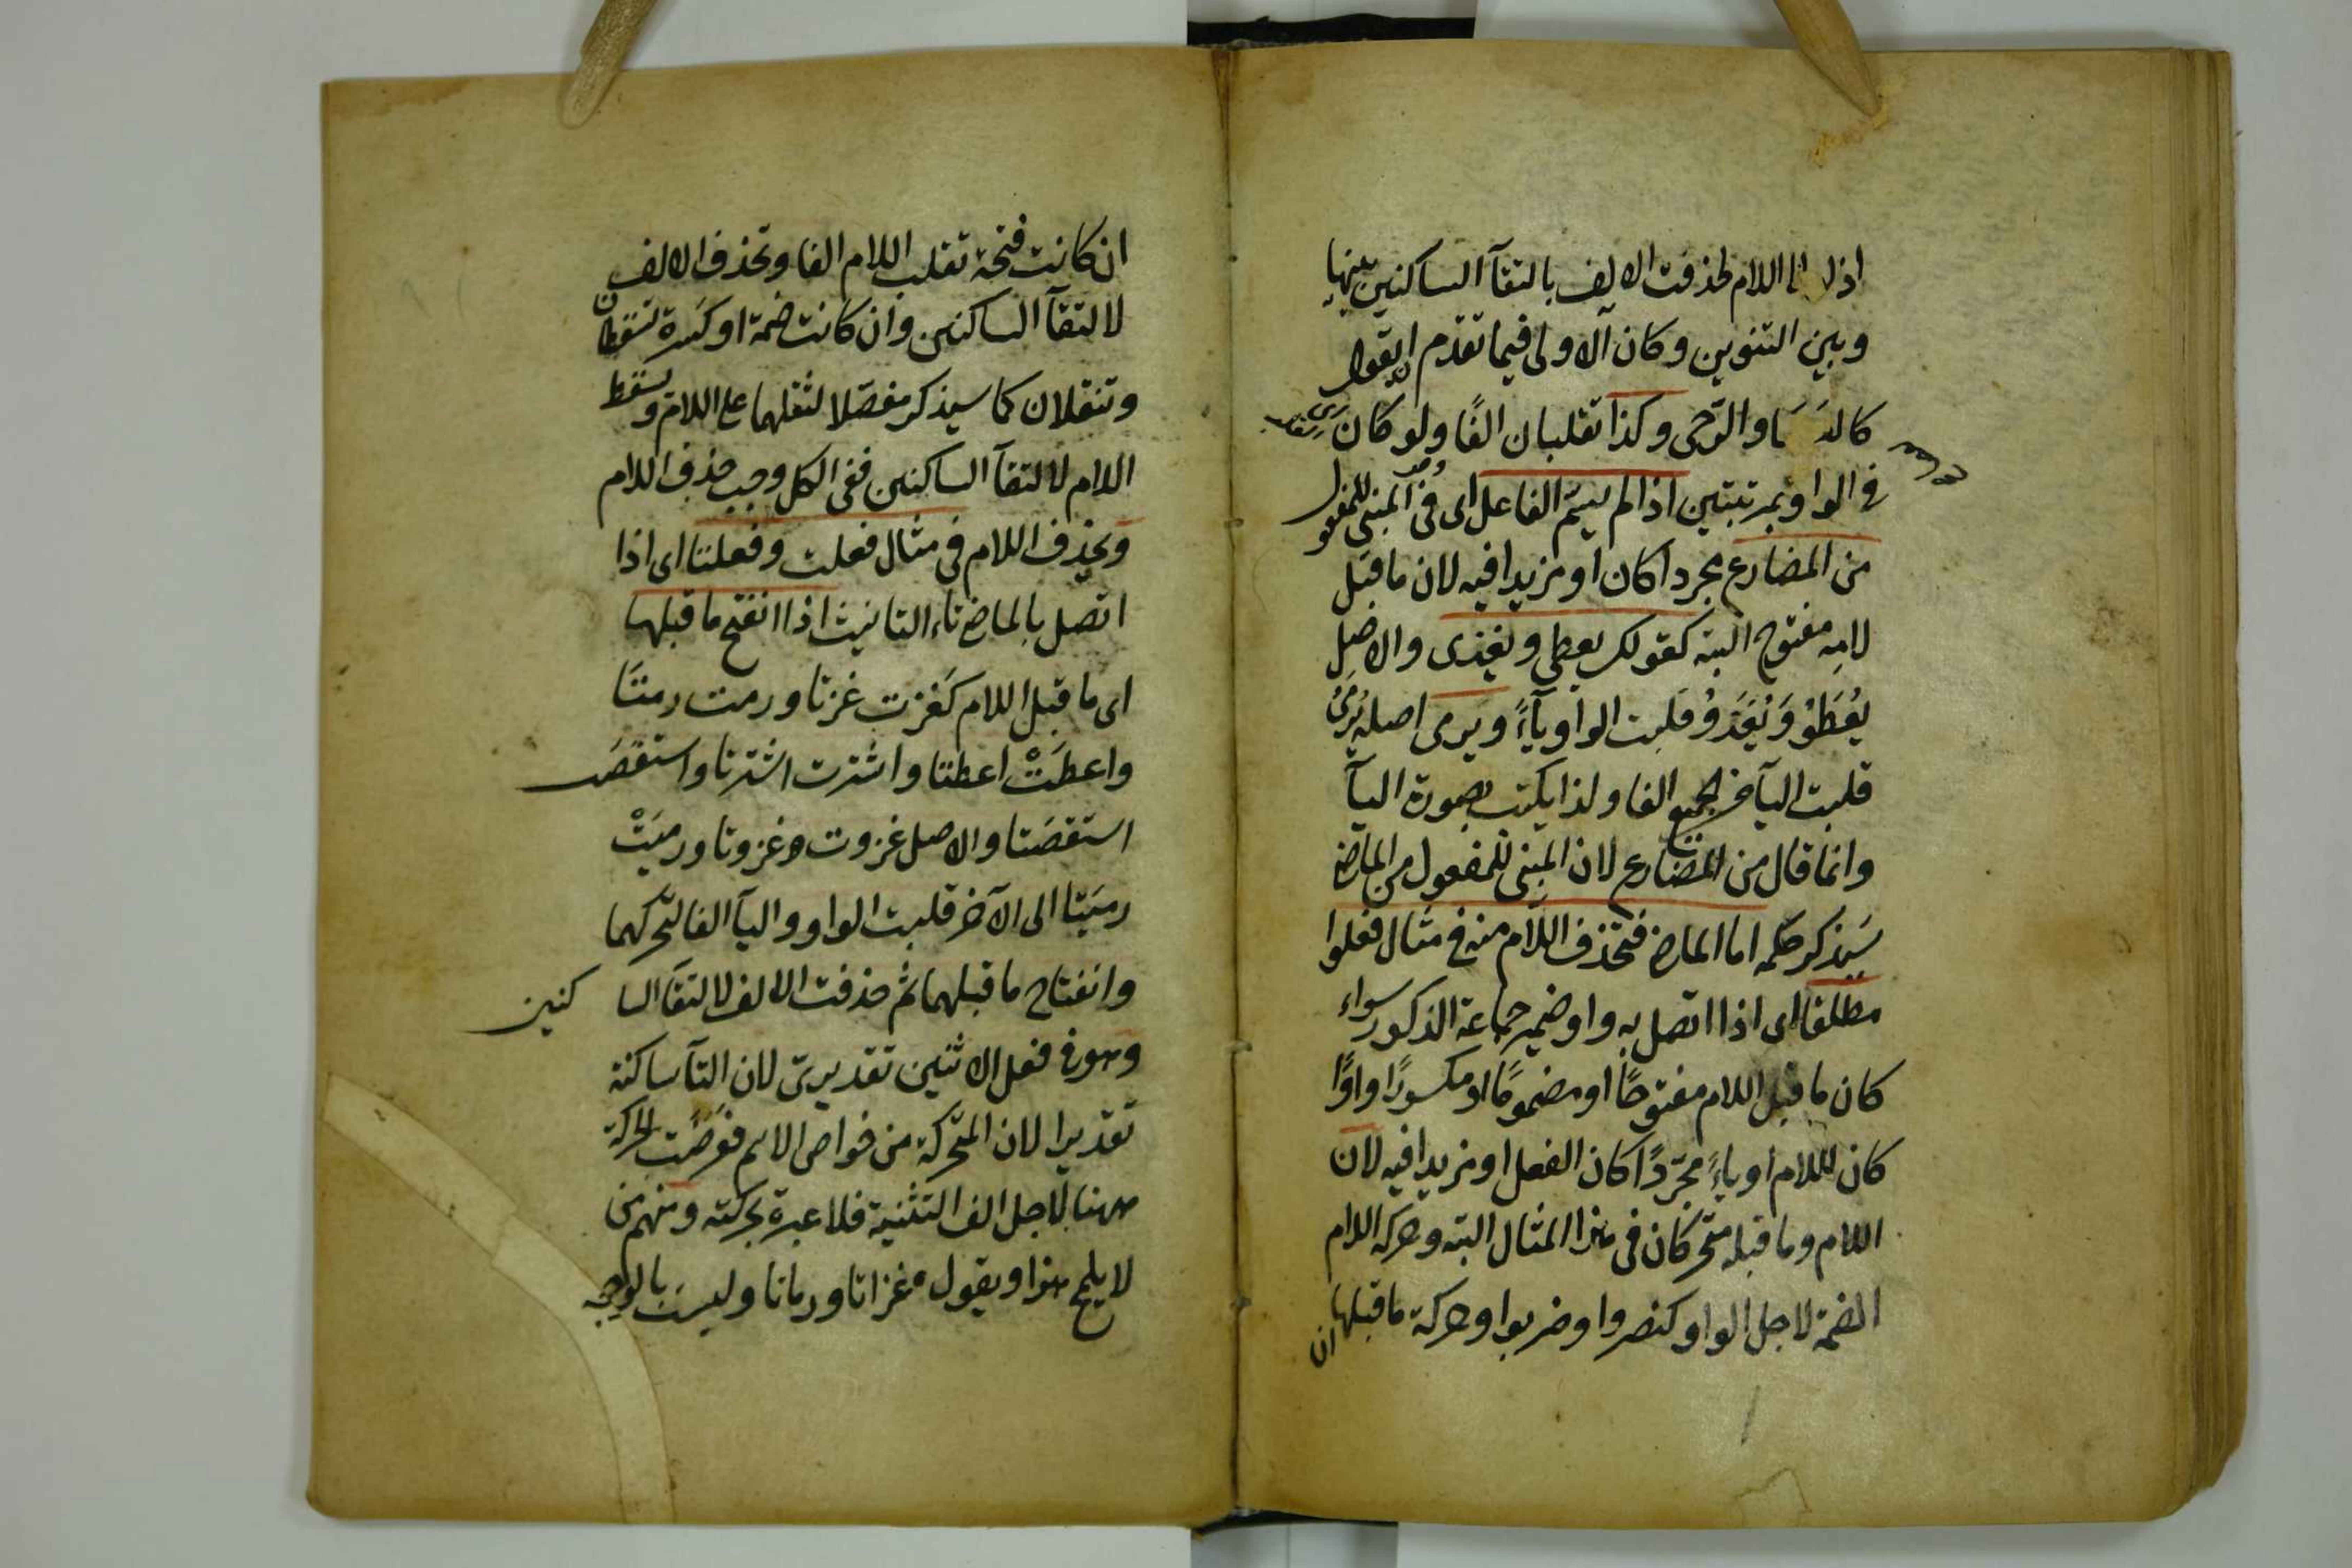 اذ لولا اللام لحذفت الالف بالتقآ الساكنين بينها
وبين التنوين وكان الاولى فيما تقدم ان يقول
كالعصا والرحى وكذا تقلبان الفًا ولو كان
في الواو بمرتبتين اذا لم يسم الفاعل اى فى المبنى للمفعول
من المضارع مجردا كان او مزيدا فيه لان ما قبل
لامه مفتوح البتة كقولك يعطى ويغزى والاصل
يُعْطَوُ وَيُغْزَوُ قلبت الواو ياءً ويرمى اصله يُرْمَىُ
قلبت اليآ من الجميع الفا ولذا يكتب بصورة اليآ
وانما قال من المضارع لان المبنى للمفعول من الماضى
سَيذكر حكمه اما الماضى فتحذف اللام منه فى مثال فعلوا
مطلقا اى اذا اتصل به واو ضمير جماعة الذكور سواء
كان ما قبل اللام مفتوحًا او مضمومًا او مكسورًا واوًا
كان اللام او ياءً مجرّدًا كان الفعل او مزيدا فيه لان
اللام وما قبله متحركان فى هذا المثال البتة وحركة اللام
الضمة لاجل الواو كنصروا وضربوا وحركة ما قبلها
ان
ان كانت فتحة تقلب اللام الفا وتحذف الالف
لالتقآ الساكنين وان كانت ضمة او كسرة تسقطان
وتنقلان كما سيذكر مفصّلا لثقلهما على اللام وتسقط
اللام لالتقآ الساكنين ففى الكل وجب حذف اللام
وتحذف اللام فى مثال فعلت وفعلتا اى اذا
اتصل بالماضى تاء التانيث اذا انفتح ما قبلها
اى ما قبل اللام كَغزت غزتا ورمت رمتَا
واعطَتْ اعطتا واشترت اشترتا واستقصَت
استقصَتا والاصل غزوت وغزوتا ورميَتْ
رميَتا الى الآخر قلبت الواو واليآ الفا لتحركهما
وانفتاح ما قبلهما ثم حذفت الالف لالتقآ الساكنين
وهو فى فعل الاثنين تقديرىّ لان التآ ساكنة
تقديرا لان المتحركة من خواص الاسم فعرضت الحركة
ههنا لاجل الف التثنية فلا عبرة بحركته ومنهم من
لا يلمح هذا ويقول غزاتا ورماتا وليسَ بالوجه